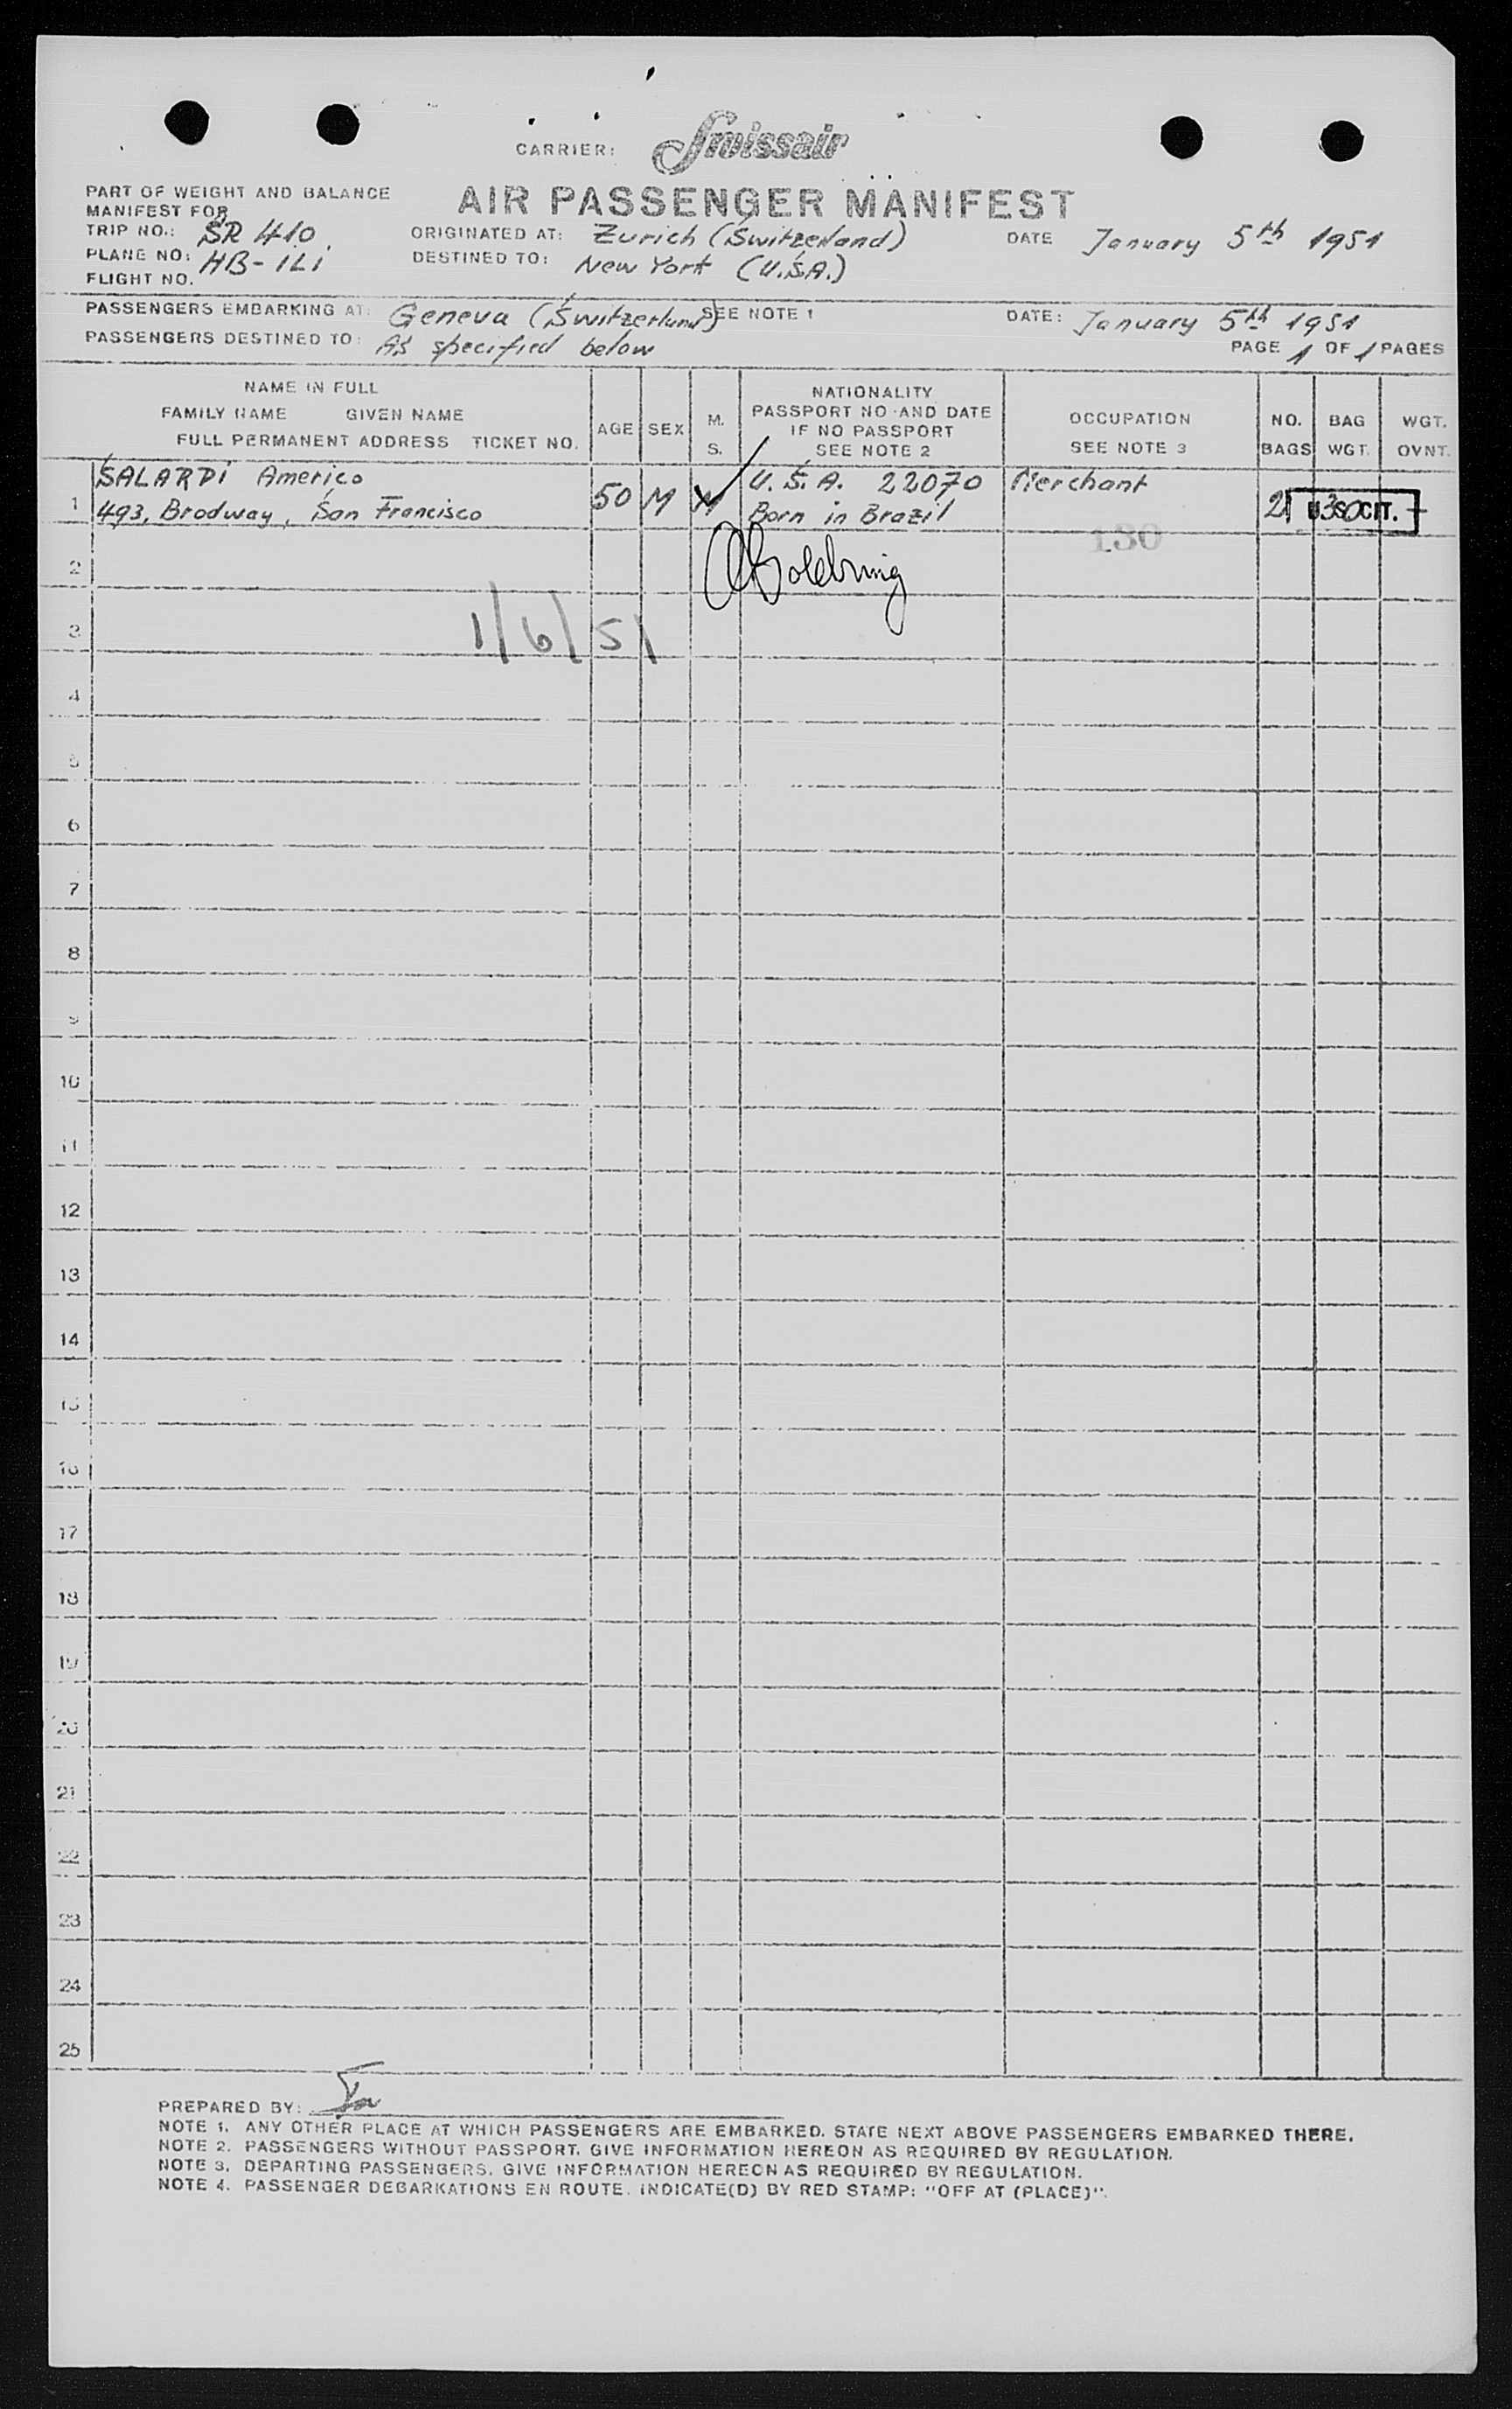 CARRIER: Swissair
AIR PASSENGER MANIFEST
PART OF WEIGHT AND BALANCE
MANIFEST FOR
TRIP NO.: SR 410.
PLANE NO: HB-ILI
FLIGHT NO.
ORIGINATED AT: Zurich (Switzerland)
DESTINED TO: New York (U.S.A.)
DATE January 5th 1951
PASSENGERS EMBARKING AT: Geneva (Switzerland) SEE NOTE 1 DATE: January 5th 1951
PASSENGERS DESTINED TO: As specified below PAGE 1 OF 1 PAGES
NAME IN FULL
FAMILY NAME GIVEN NAME
FULL PERMANENT ADDRESS TICKET NO.
AGE
SEX
M.
S.
NATIONALITY
PASSPORT NO AND DATE
IF NO PASSPORT
SEE NOTE 2
OCCUPATION
SEE NOTE 3
NO.
BAGS
BAG
WGT.
WGT.
OVNT.
1 SALARDI Americo 50 M M U.S.A. 22070 Merchant 2 30 -
493, Brodway, San Francisco Born in Brazil
U.S. CIT.
130
2
3
1/6/51
4
5
6
7
8
9
10
11
12
13
14
15
16
17
18
19
20
21
22
23
24
25
PREPARED BY:
NOTE 1. ANY OTHER PLACE AT WHICH PASSENGERS ARE EMBARKED. STATE NEXT ABOVE PASSENGERS EMBARKED THERE.
NOTE 2. PASSENGERS WITHOUT PASSPORT. GIVE INFORMATION HEREON AS REQUIRED BY REGULATION.
NOTE 3. DEPARTING PASSENGERS. GIVE INFORMATION HEREON AS REQUIRED BY REGULATION.
NOTE 4. PASSENGER DEBARKATIONS EN ROUTE. INDICATE(D) BY RED STAMP: "OFF AT (PLACE)".